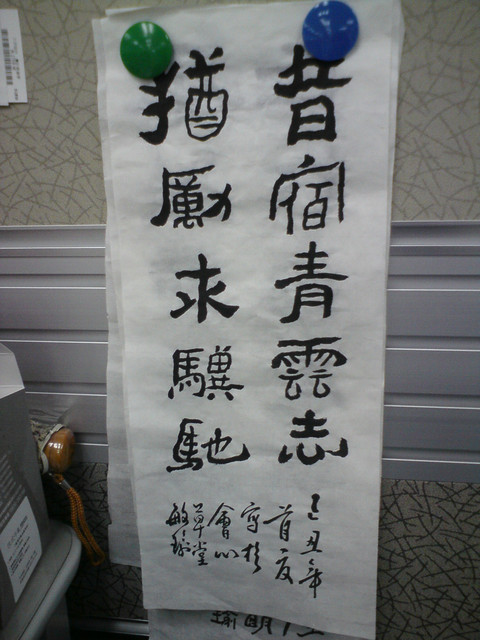 昔宿青雲志
猶勵求驥馳
乙丑年
首夏
寫於
會心
草堂
敏瑜